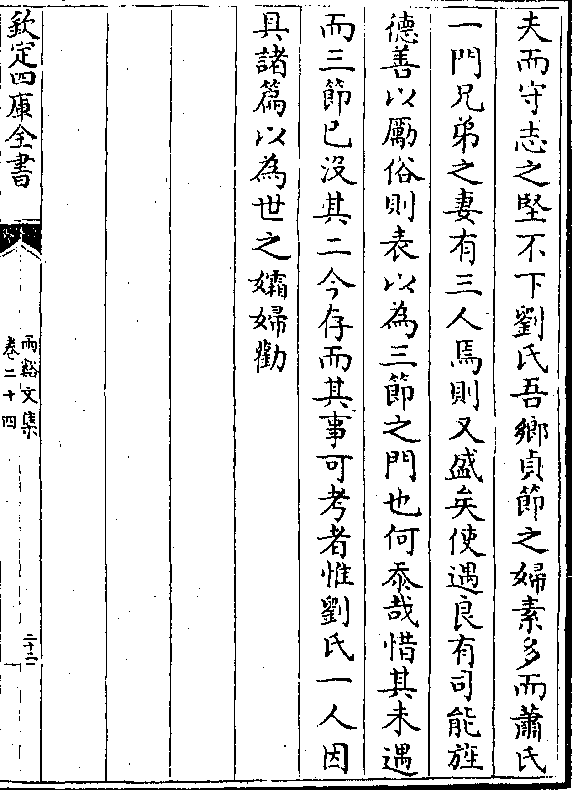 夫而守志之堅不下劉氏吾鄉貞節之婦素多而蕭氏
一門兄弟之妻有三人焉則又盛矣使遇良有司能旌
德善以勵俗則表以為三節之門也何忝哉惜其未遇
而三節已沒其二今存而其事可考者惟劉氏一人因
具諸篇以為世之孀婦勸
欽定四庫全書
兩谿文集
卷二十四
二十二